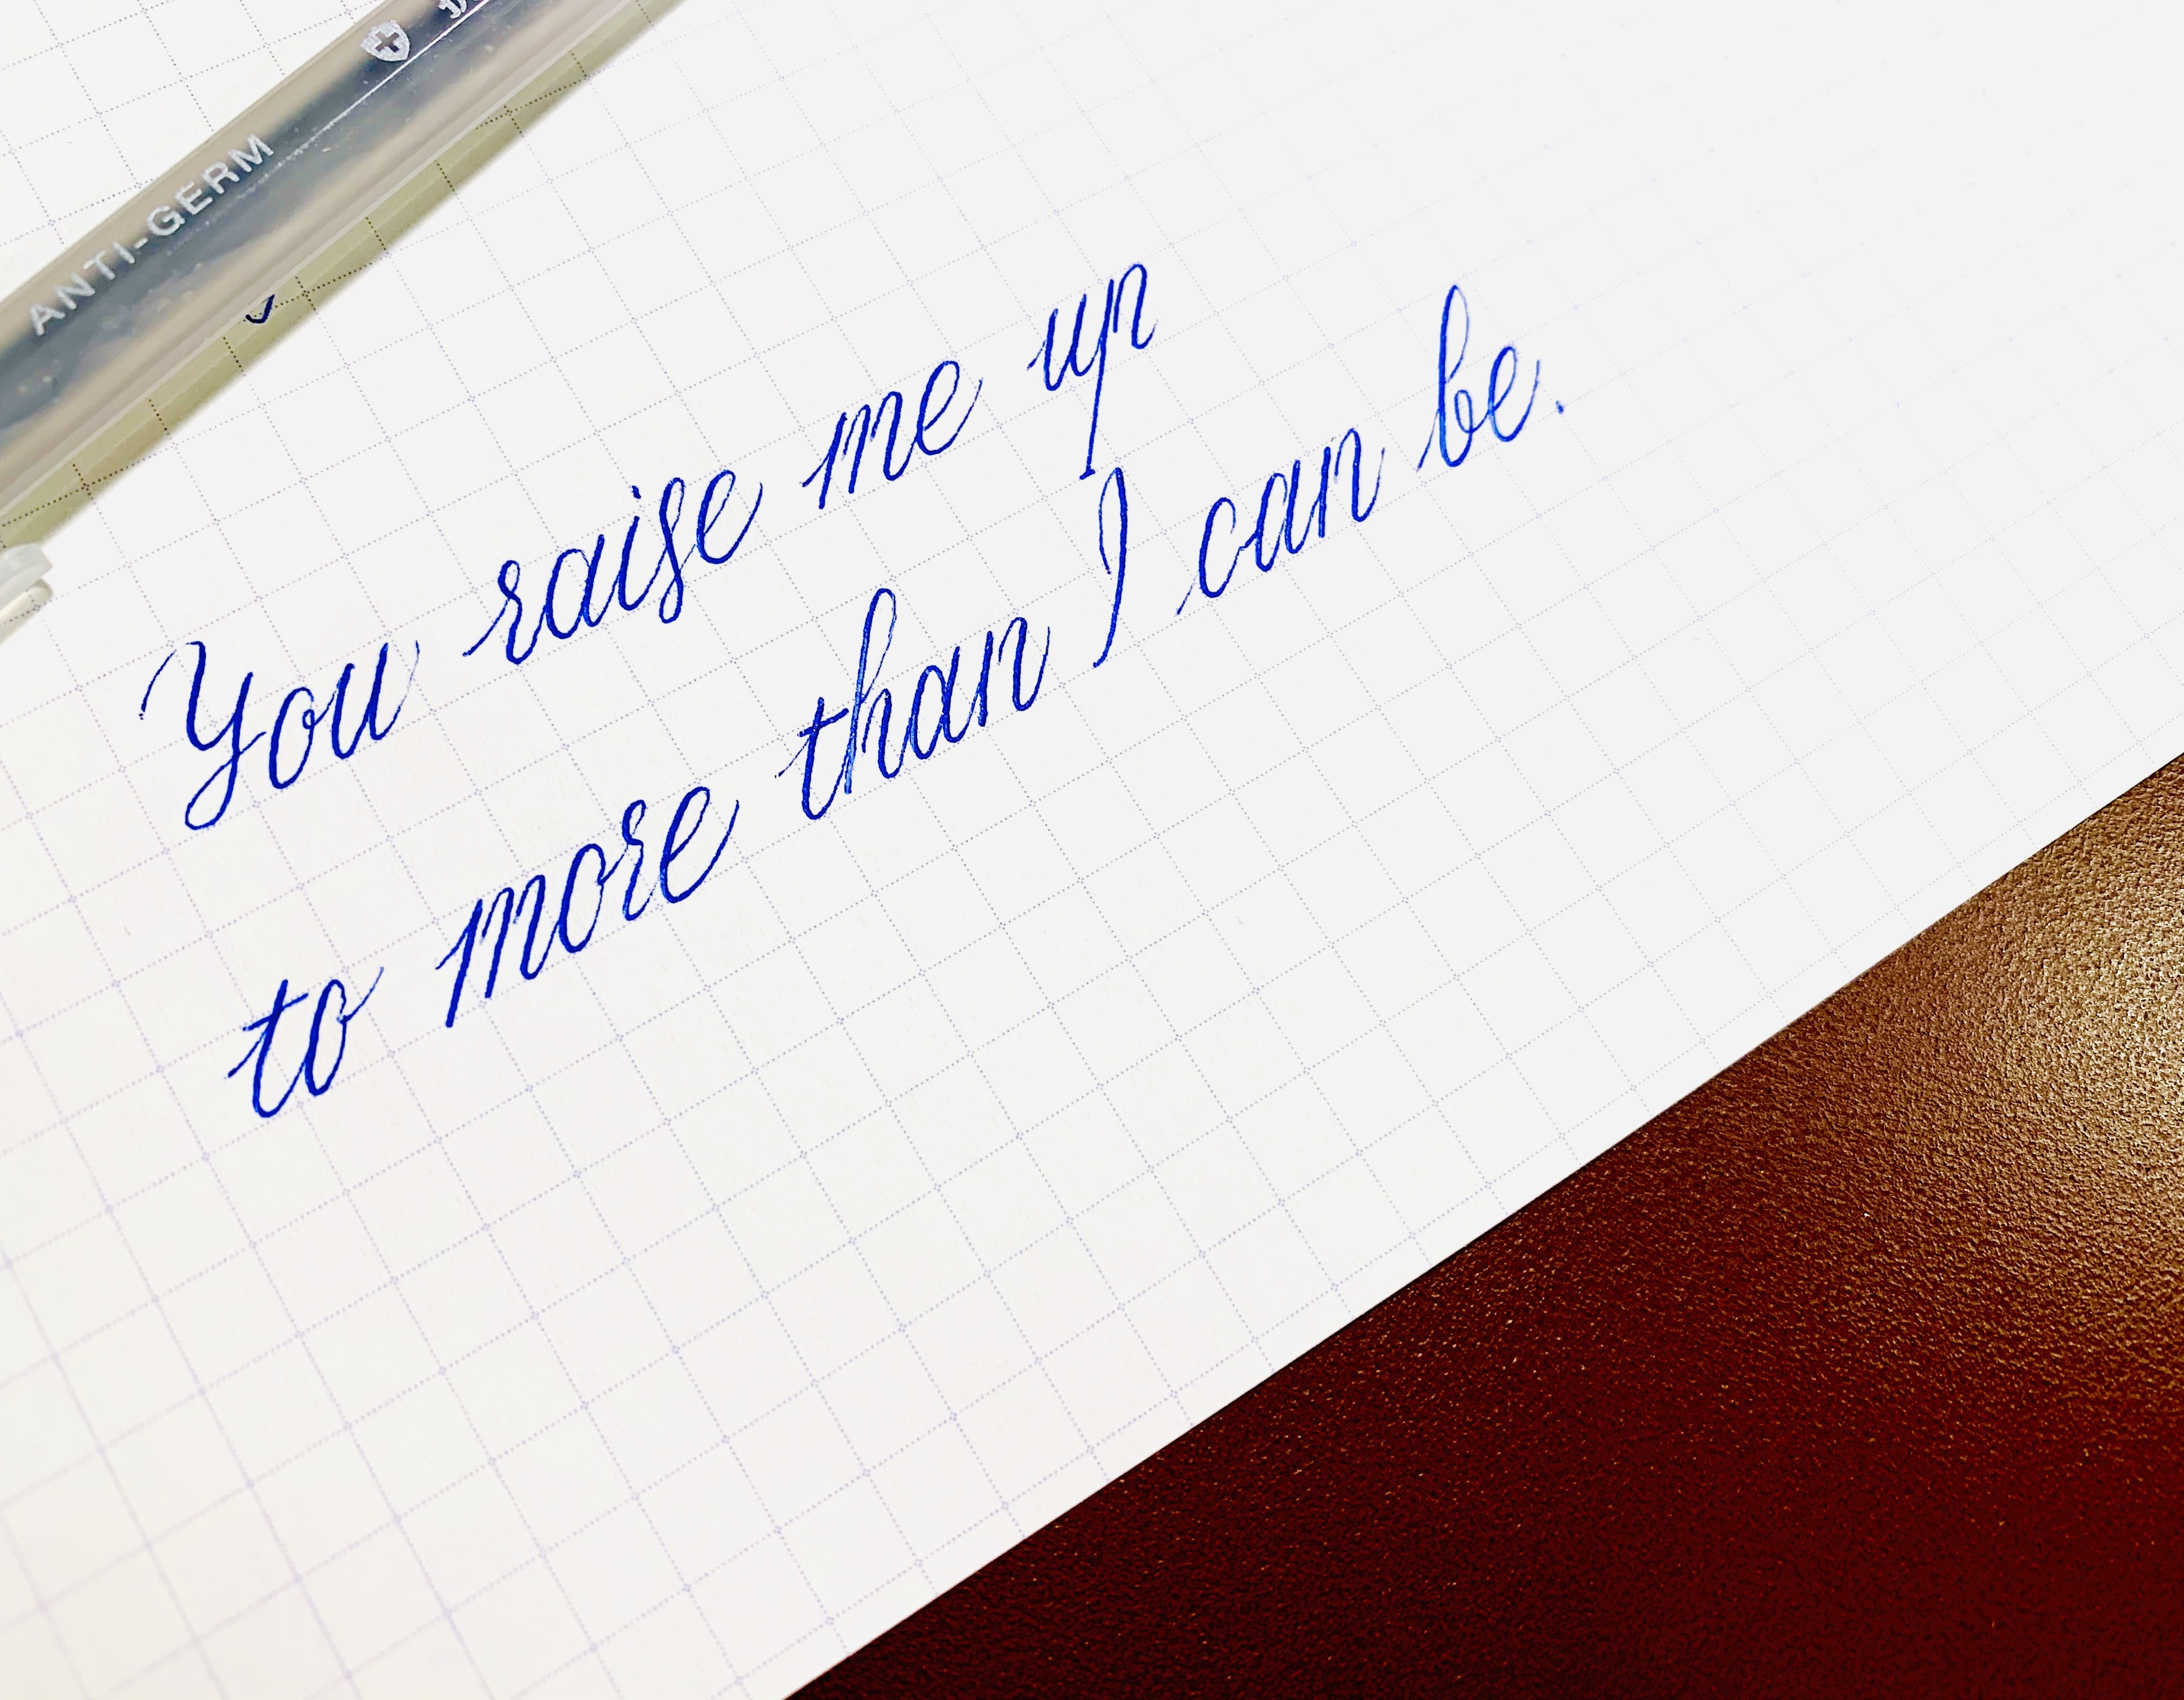 ANTI-GERM
You raise me up
to more than I can be.